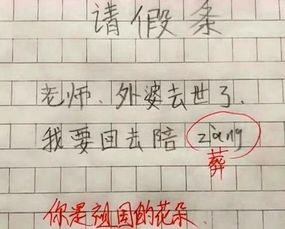 请假条
老师、外婆去世了.
我要回去陪 zàng
葬
你是祖国的花朵